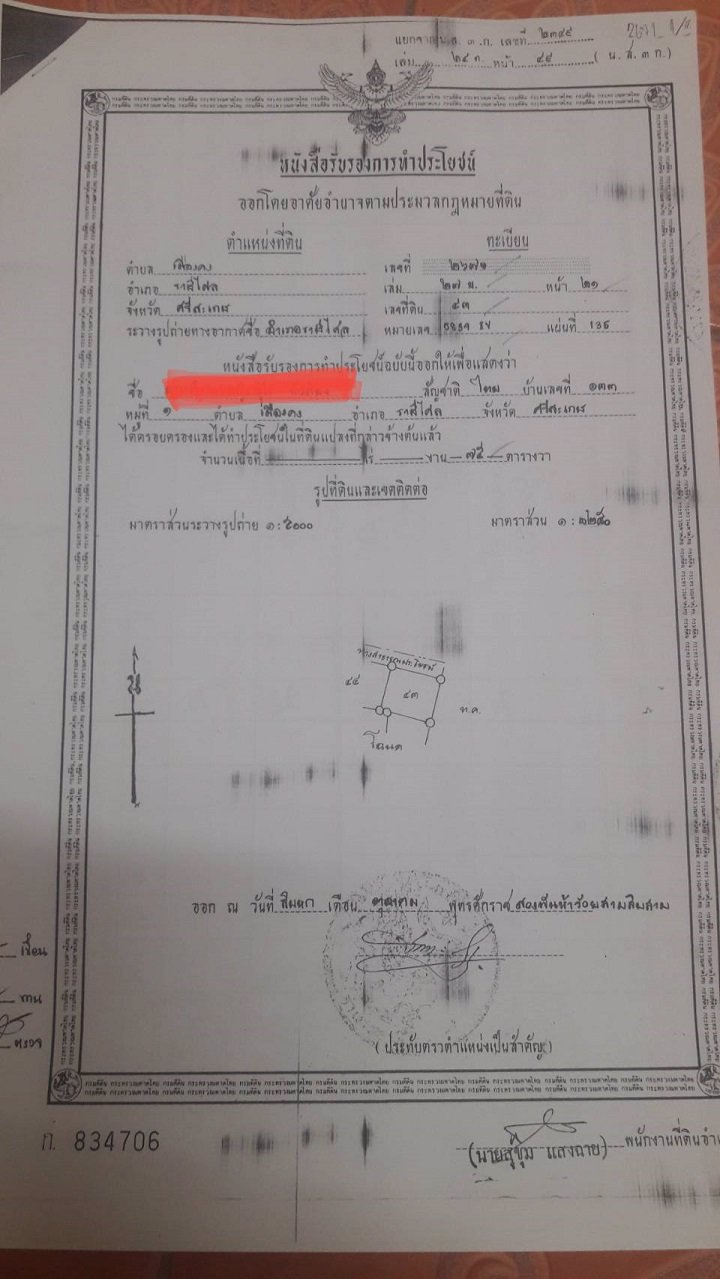 แยกจาก น.ส. ๓ ก. เลขที่ ๒๓๔๕
เล่ม ๒๔ ก หน้า ๔๕ ( น.ส. ๓ ก.)
หนังสือรับรองการทำประโยชน์
ออกโดยอาศัยอำนาจตามประมวลกฎหมายที่ดิน
ตำแหน่งที่ดิน
ทะเบียน
ตำบล เมืองคง
เลขที่ ๒๖๗๑
อำเภอ ราษีไศล
เล่ม ๒๗ ข. หน้า ๒๑
จังหวัด ศรีสะเกษ
เลขที่ดิน ๕๓
ระวางรูปถ่ายทางอากาศชื่อ อำเภอราษีไศล
หมายเลข 5839 IV แผ่นที่ 136
หนังสือรับรองการทำประโยชน์ฉบับนี้ออกให้เพื่อแสดงว่า
ชื่อ สัญชาติ ไทย บ้านเลขที่ ๑๓๓
หมู่ที่ ๑ ตำบล เมืองคง อำเภอ ราษีไศล จังหวัด ศรีสะเกษ
ได้ครอบครองและได้ทำประโยชน์ในที่ดินแปลงที่กล่าวข้างต้นแล้ว
จำนวนเนื้อที่ ไร่ งาน ๗๕ ตารางวา
รูปที่ดินและเขตติดต่อ
มาตราส่วนระวางรูปถ่าย ๑ : ๕๐๐๐
มาตราส่วน ๑ : ๑๒๕๐
ทางสาธารณประโยชน์
๔๔
๕๓
ท.ค.
โฉนด
ออก ณ วันที่ สิบหก เดือน ตุลาคม พุทธศักราช สองพันห้าร้อยสามสิบสาม
( ประทับตราตำแหน่งเป็นสำคัญ )
เขียน
ทาน
ตรวจ
กรมที่ดิน กระทรวงมหาดไทย
ก. 834706
(นายสุขุม แสงฉาย) พนักงานที่ดินอำ